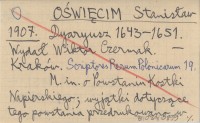 OŚWIĘCIM Stanisław
1907. Dyaryusz 1643-1651.
Wydał Wiktor Czermak. -
Kraków. Scriptores Rerum Polonicarum 19.
M. in. o Powstaniu Kostki
Napierskiego; wyjątki dotyczące
tego powstania przedrukowano